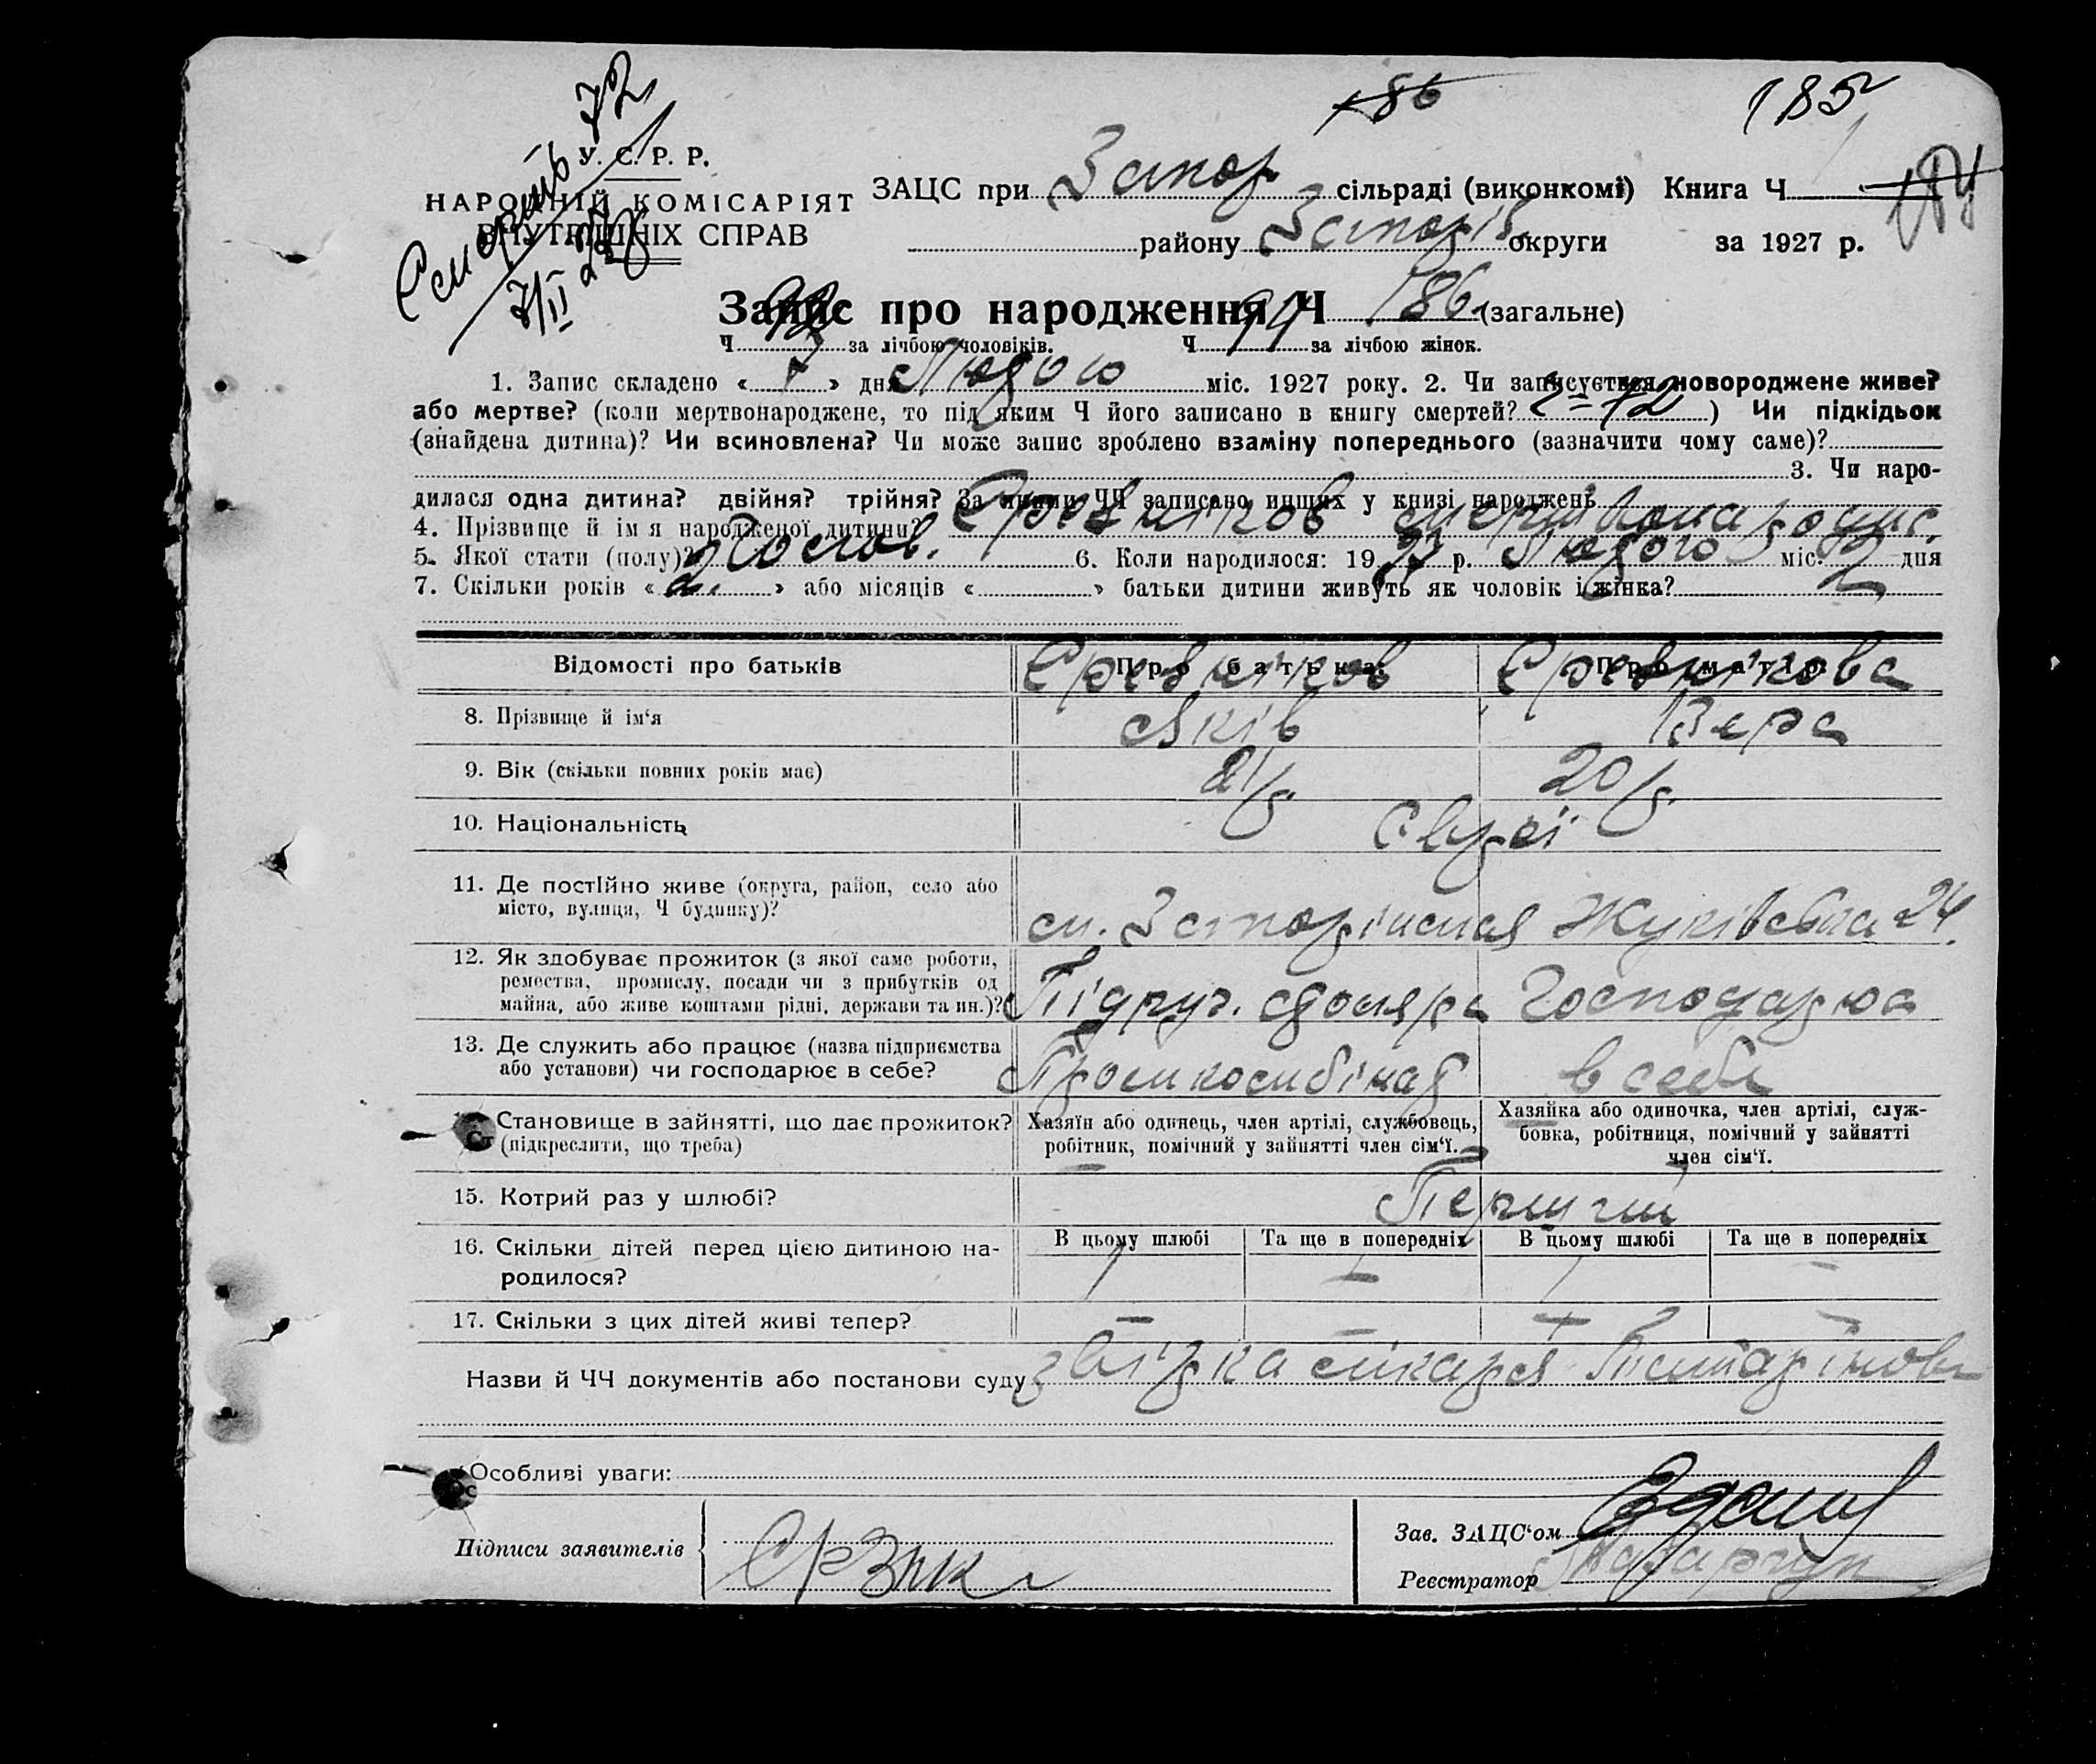 186
185
72
У. С. Р. Р.
НАРОДНІЙ КОМІСАРІЯТ
ВНУТРІШНІХ СПРАВ
7/II 27
ЗАЦС при Запор сільраді (виконкомі) Книга Ч
району Запоріз округи за 1927 р.
Запис про народження Ч 186 (загальне)
Ч за лічбою чоловіків. Ч 94 за лічбою жінок.
1. Запис складено « 7 » дня Лютого міс. 1927 року. 2. Чи записується новороджене живе?
або мертве? (коли мертвонароджене, то під яким Ч його записано в книгу смертей? 72 ) Чи підкідьок
(знайдена дитина)? Чи всиновлена? Чи може запис зроблено взаміну попереднього (зазначити чому саме)?
3. Чи наро-
дилася одна дитина? двійня? трійня? За якими ЧЧ записано инших у книзі народжень
4. Прізвище й імя народженої дитини? мертвонародис.
5. Якої стати (полу)? Чолов. 6. Коли народилося: 1927 р. Лютого міс. 2 дня
7. Скільки років « 2. » або місяців « » батьки дитини живуть як чоловік і жінка?
Відомості про батьків Про батька: Про матір:
8. Прізвище й ім'я Яків Вера
9. Вік (скільки повних років має) 21/р. 20/р.
10. Національність Євреї
11. Де постійно живе (округа, район, село або
місто, вулиця, Ч будинку)? м. Запоріжжя Жуківська 24.
12. Як здобуває прожиток (з якої саме роботи,
ремества, промислу, посади чи з прибутків од
майна, або живе коштами рідні, держави та ин.)? Підруч. столяра Господарює
13. Де служить або працює (назва підприємства
або установи) чи господарює в себе? Промкомбінат в себе
Становище в зайнятті, що дає прожиток?
(підкреслити, що треба)
Хазяїн або одинець, член артілі, службовець,
робітник, помічний у зайнятті член сім'ї.
Хазяйка або одиночка, член артілі, служ-
бовка, робітниця, помічний у зайнятті
член сім'ї.
15. Котрий раз у шлюбі? Перший
16. Скільки дітей перед цією дитиною на-
родилося?
В цьому шлюбі Та ще в попередніх В цьому шлюбі Та ще в попередніх
1 – 1 –
17. Скільки з цих дітей живі тепер? – – – –
Назви й ЧЧ документів або постанови суду довідка лікаря
Особливі уваги:
Підписи заявителів
Зав. ЗАЦС'ом
Реєстратор